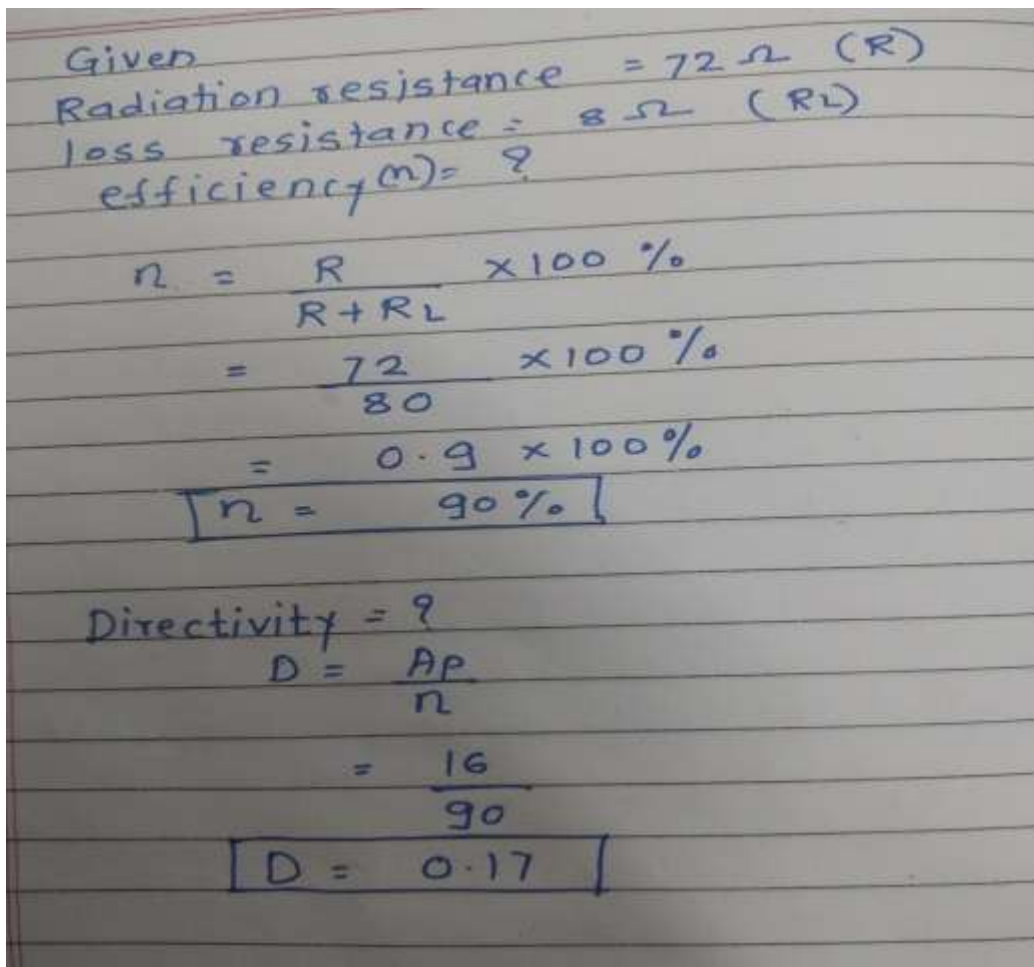 Given
Radiation resistance = 72 Ω (R)
loss resistance = 8 Ω (RL)
efficiency (n) = ?
n = R / R + RL × 100 %
= 72 / 80 × 100 %
= 0.9 × 100 %
n = 90 %
Directivity = ?
D = Ap / n
= 16 / 90
D = 0.17